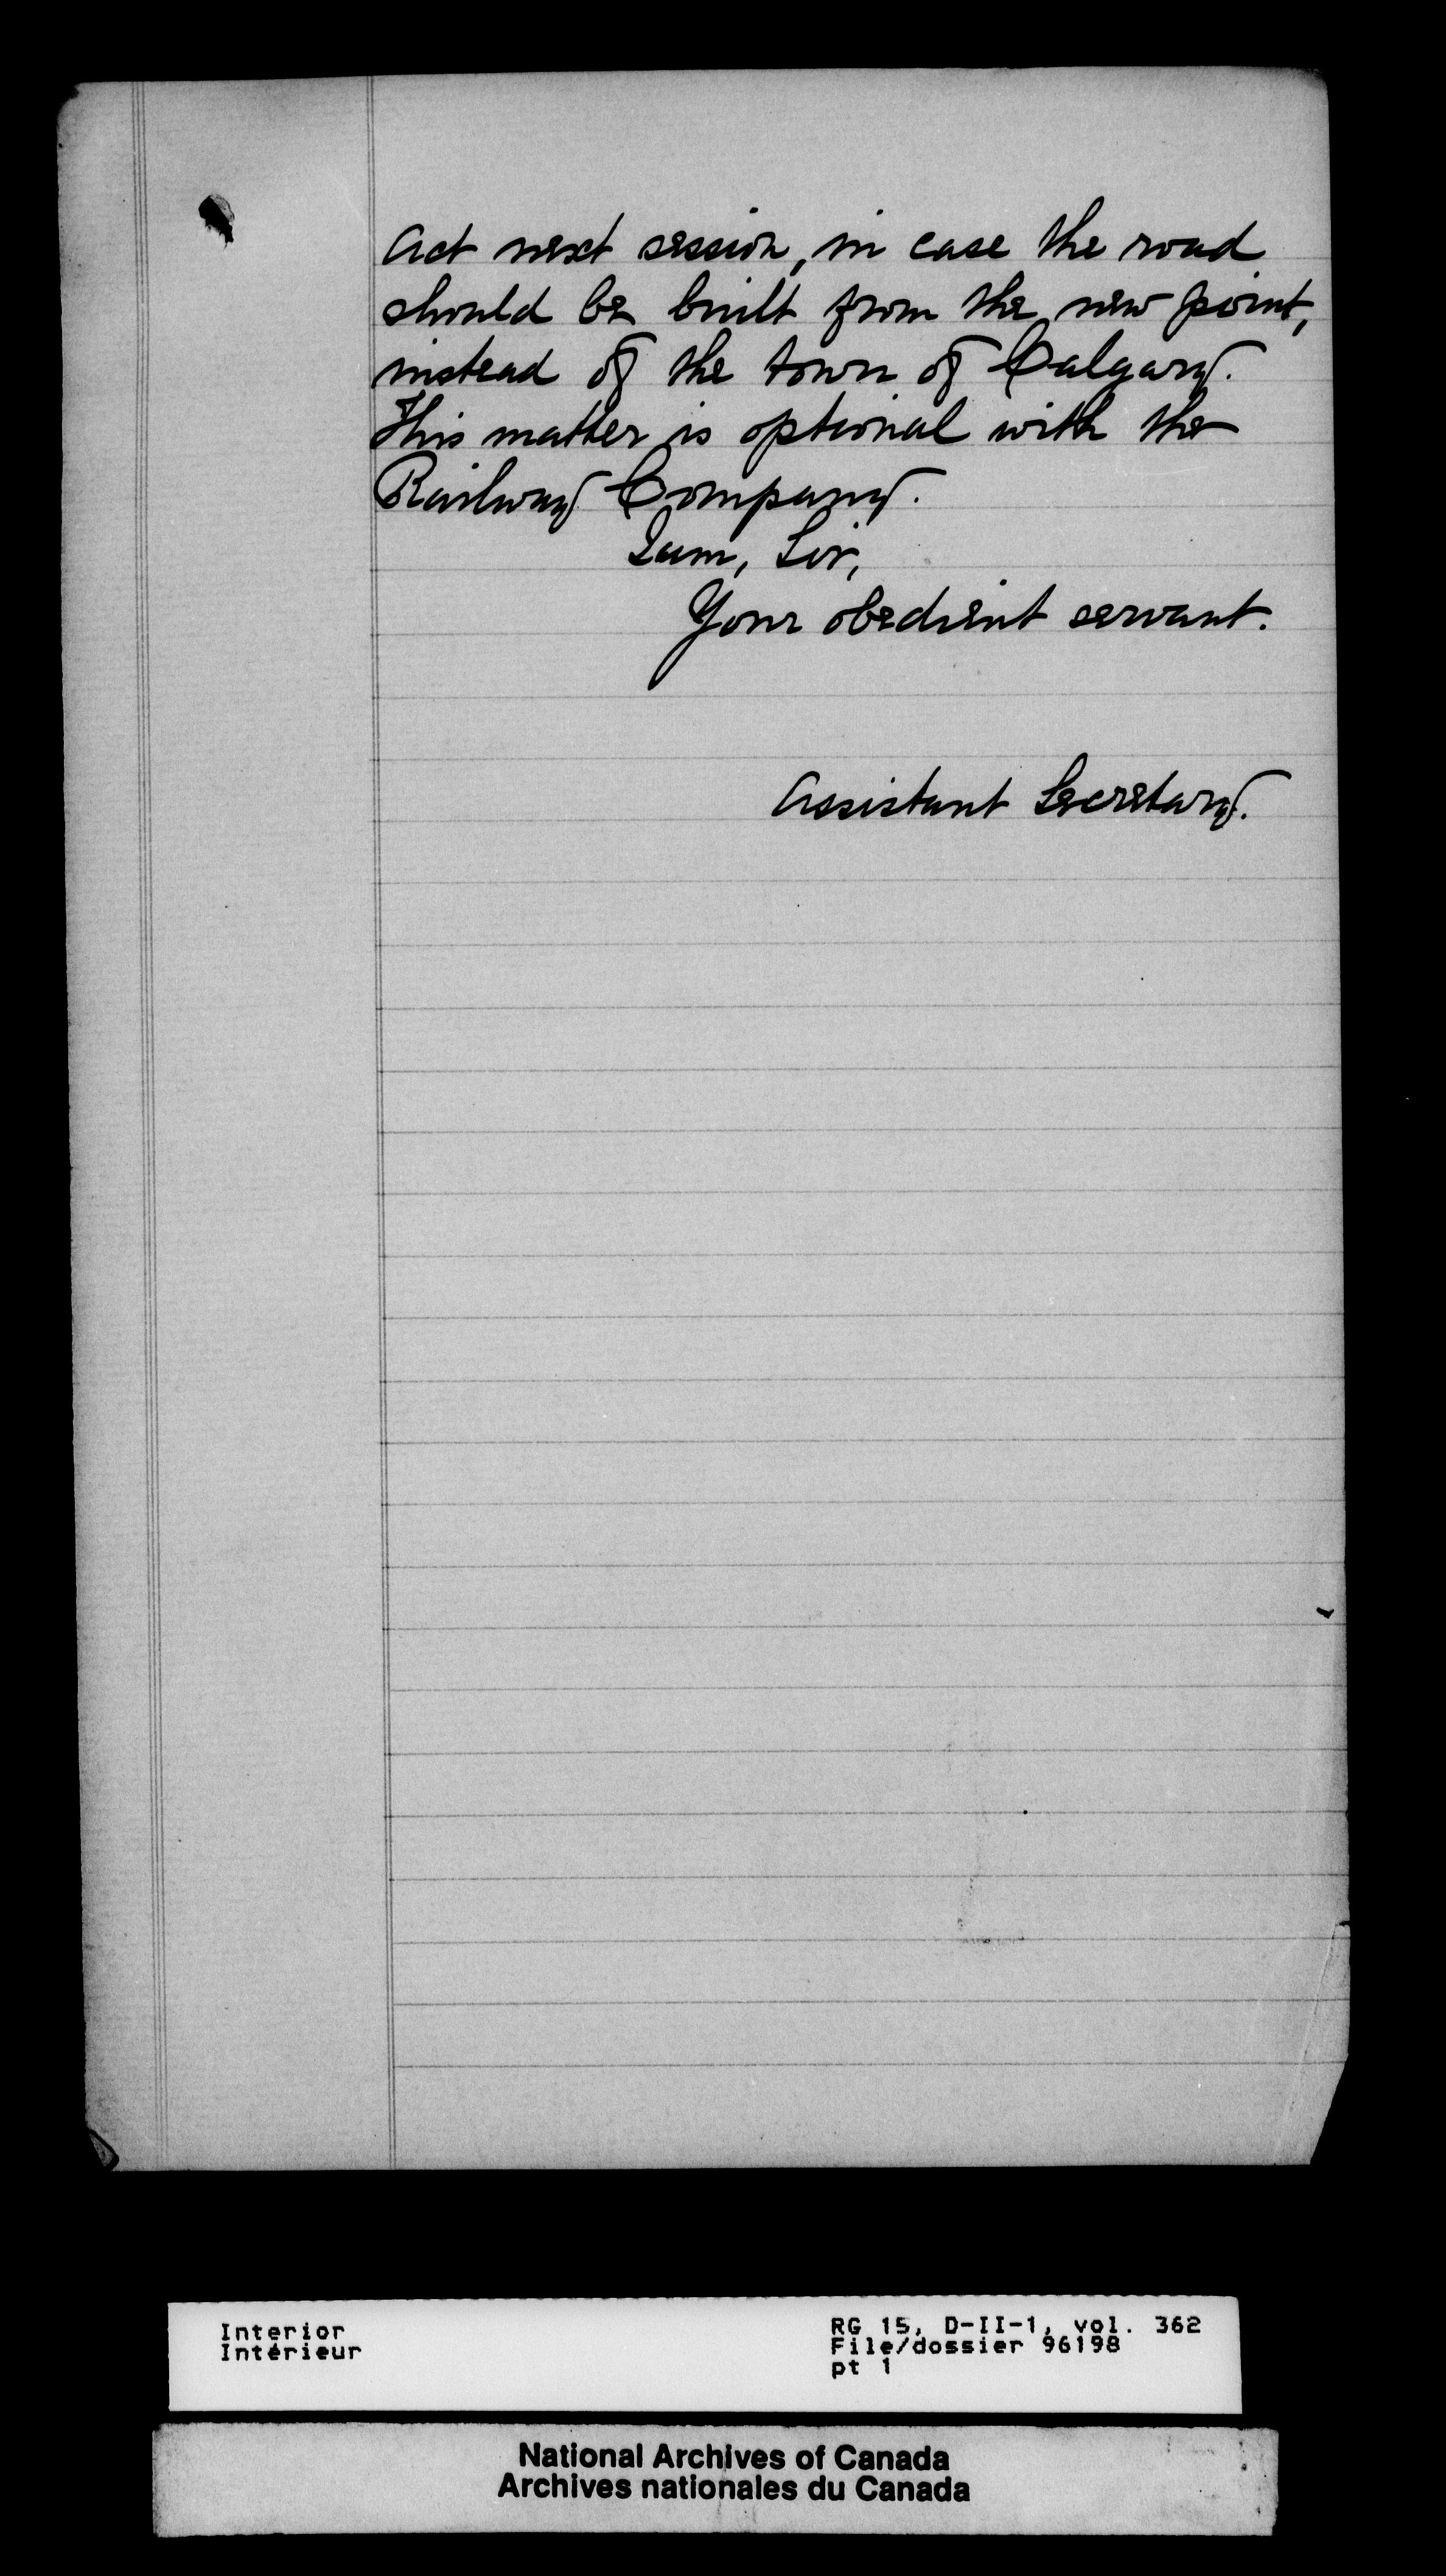 Act next session, in case the road
should be built from the new point,
instead of the town of Calgary.
This matter is optional with the
Railway Company.
I am, Sir,
Your obedient servant.
Assistant Secretary.
Interior
Intérieur
RG 15, D-II-1, vol. 362
File/dossier 96198
pt 1
National Archives of Canada
Archives nationales du Canada